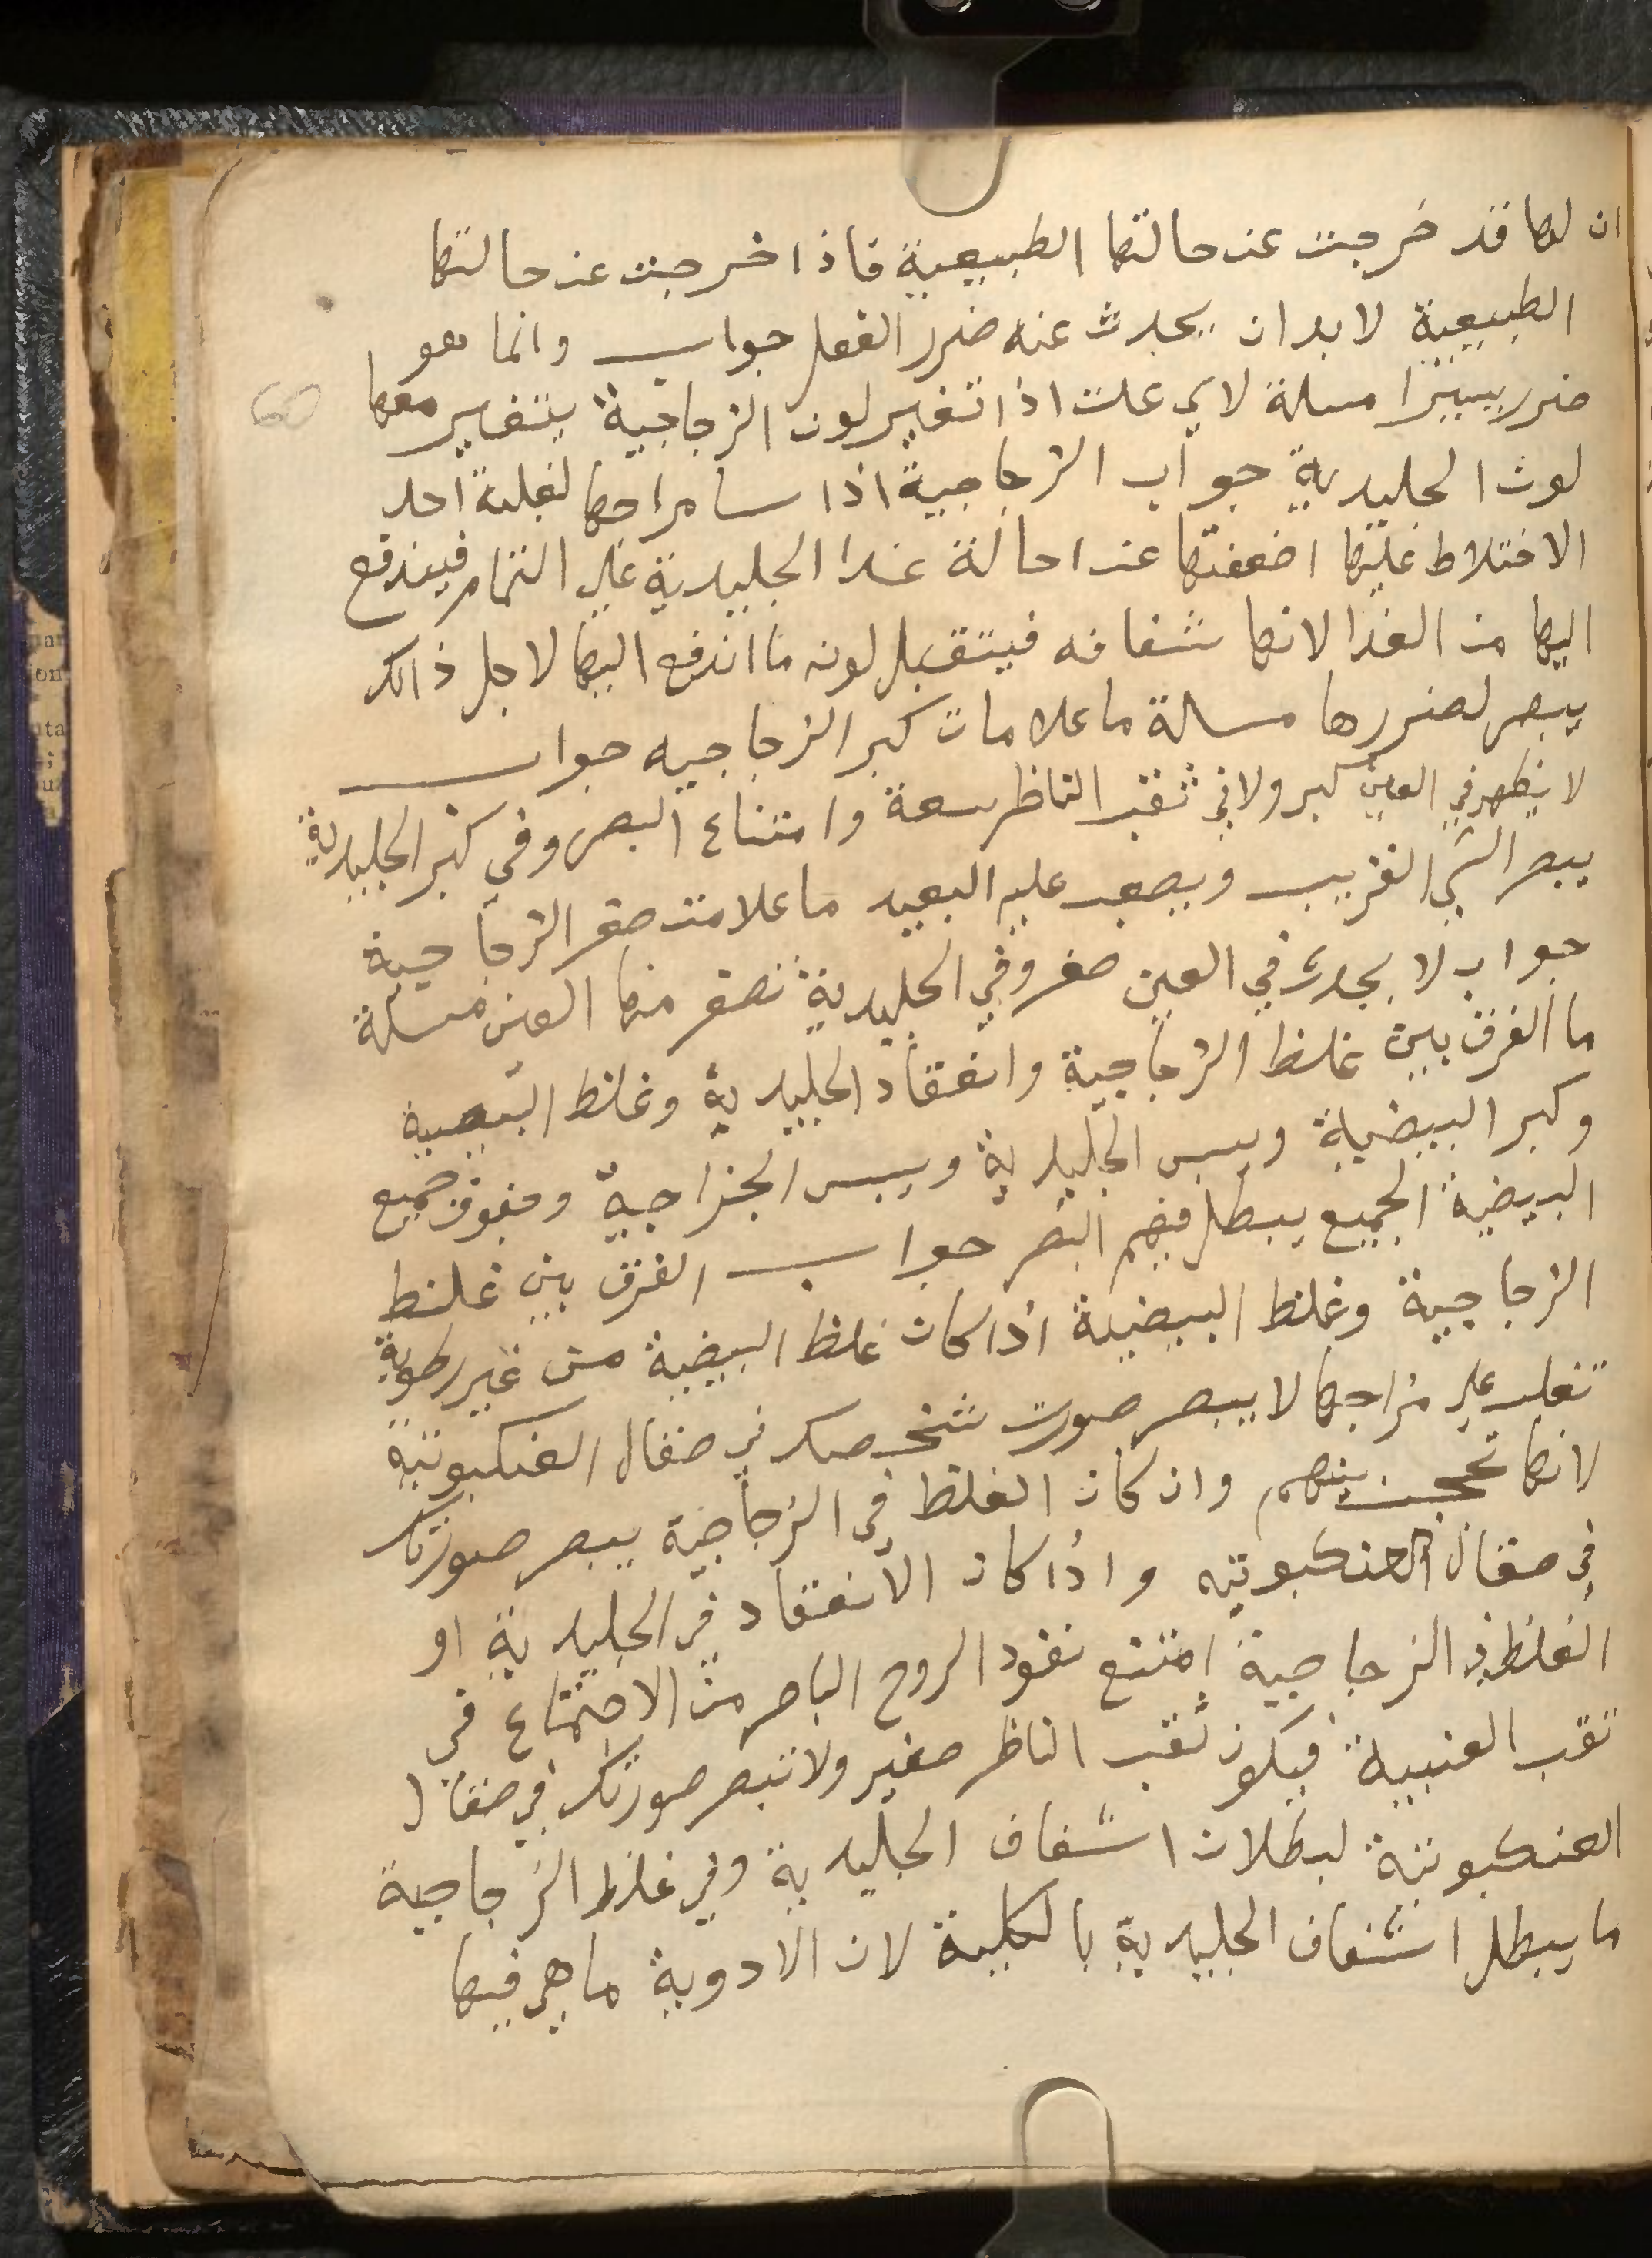 ان لها قد خرجت عن حالتها الطبيعية فاذا خرجت عن حالتها
الطبيعية لا بد ان يحدث عنه ضرر الفعل جواب وانما هو
ضرر يسيرا مسلة لاي علت اذا تغير لون الزجاجية يتغير معها
لون الجليدية جواب الزجاجية اذا سا مزاجها لغلبة احد
الاختلاط عليها اضعفتها عند احالة غذا الجليدية علي التمام فيندفع
اليها من الغذا لانها شفافه فيتقبل لونه ما اندفع اليها لاجل ذالك
يبصر لضررها مسالة ما علامات كبر الزجاجيه جواب
لا يظهر في العين كبر ولا في ثقب الناظر سعة وامتناع البصر وفي كبر الجليدية
يبصر الشي القريب ويصعب عليه البعيد ما علامت صغر الزجاجية
جواب لا يحدث في العين صغر وفي الجليدية تصغر منها العين مسلة
ما الفرق بين غلظ الزجاجية وانعقاد الجليدية وغلظ البيضية
وكبر البيضية ويبس الجليدية ويبس الجزاجية جميع
البيضية الجميع يبطل فيهم البصر جواب الفرق بين غلظ
الزجاجية وغلظ البيضية اذا كان غلظ البيضية من غير رطوبة
تغلب علي مزاجها لا يبصر صورت شخصك في صقال العنكبوتية
لانها تحجب بينهم وان كان الغلظ في الزجاجية يبصر صورتك
في صقال العنكبوتيه واذا كان الانعقاد في الجليدية او
الغلظ في الزجاجية امتنع نفود الروح الباصر من الاجتماع في
تقب العنبية فيكون ثقب الناظر صغير ولا تبصر صورتك في صقال
العنكبوتية لبطلان اشفاف الجليدية وفي غلظ الزجاجية
ما يبطل اشفاف الجليدية بالكلية لان الادوية ما هي فيها